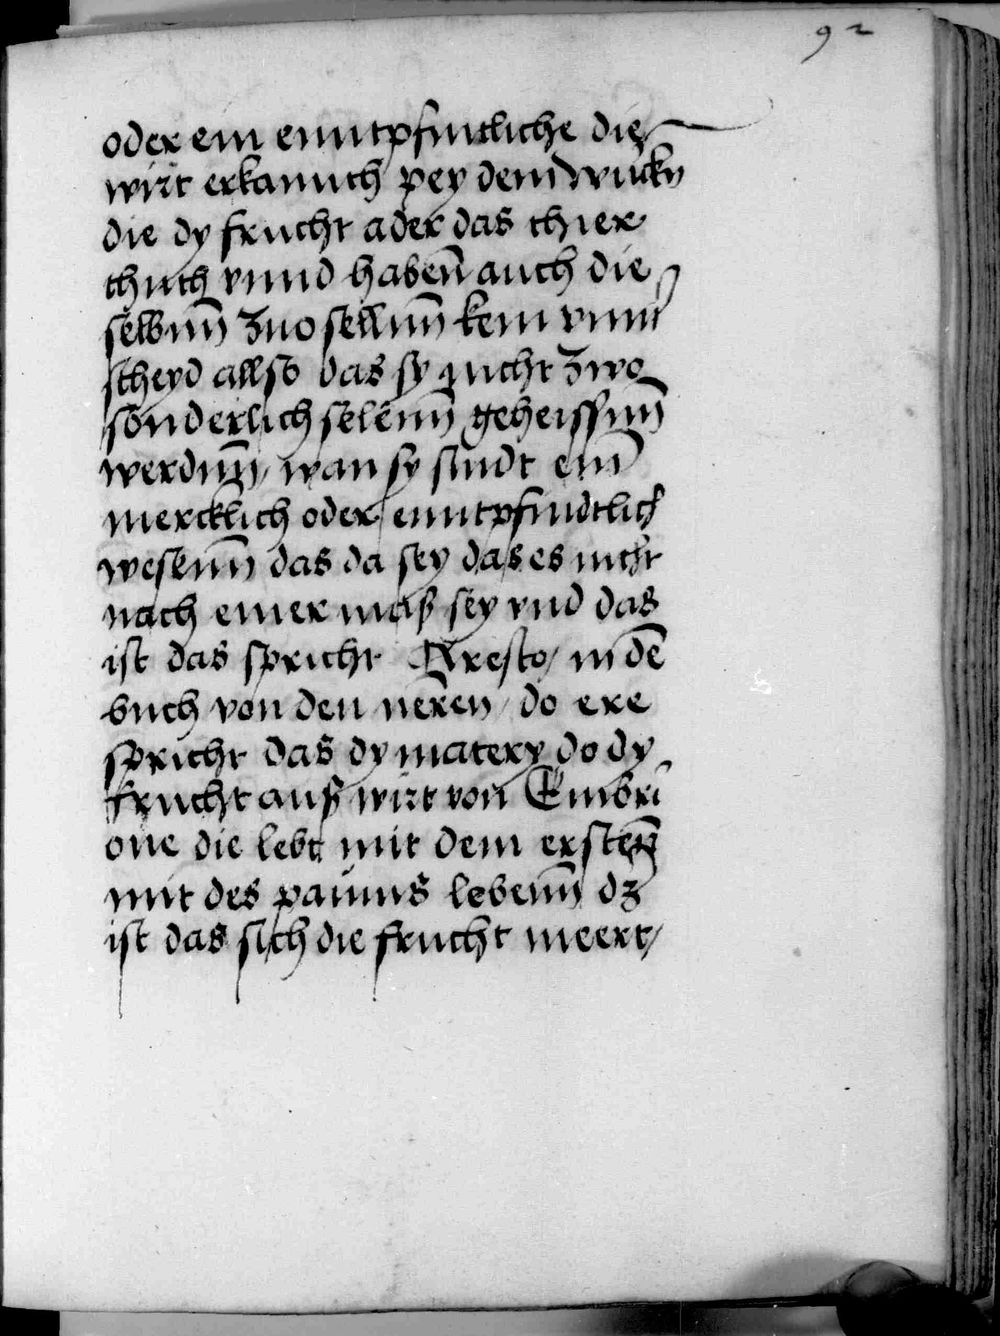 92
oder ein enntpfintliche die
wirt erkannth pey dem wircku
die dy frucht ader das thier
thuth vnnd habenn auch die
selbnn zuo sellnn kein vnnr
scheyd allso das sy nicht zwo
sonderlich selenn geheissnn
werdnn / wan sy sindt ein
mercklich oder enntpfindtlich
wesenn das da sey das es nicht
nach einer mass sey vnd das
ist das spricht Aresto / in dē
buch von den neren / do ere
spricht das dy matery do dy
frucht auß wirt von Embri
one die lebt mit dem erstenn
mit des paums lebenn dz
ist das sich die frucht meert /